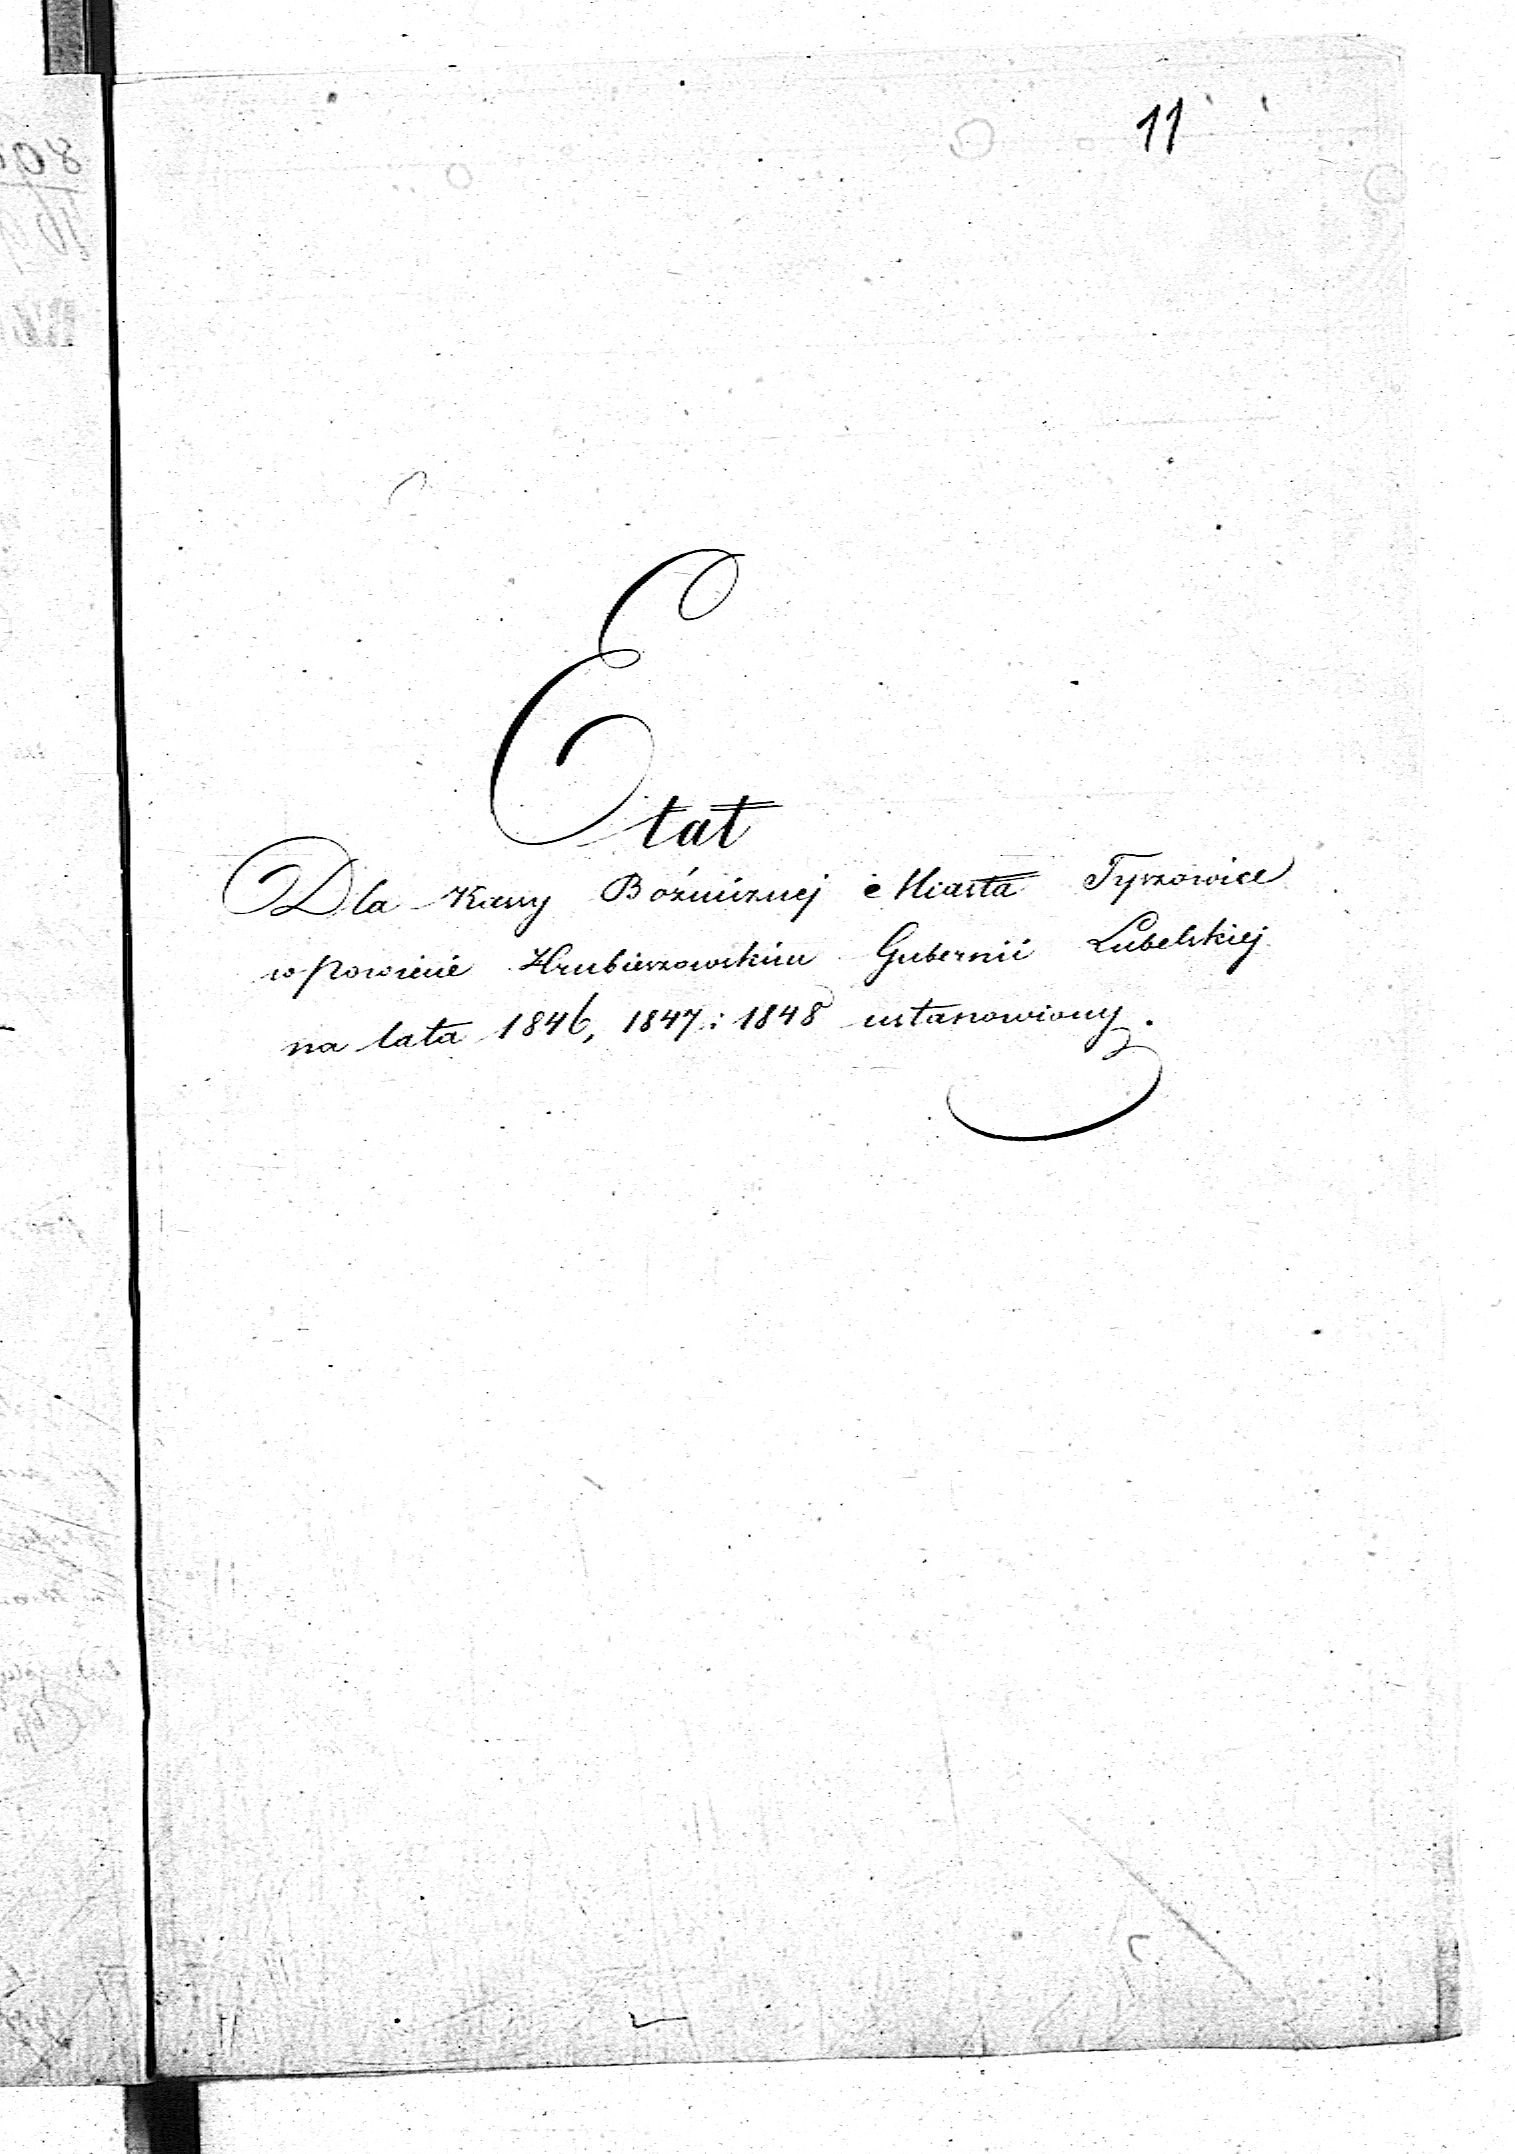 11
Etat
Dla Kassy Bożnicznej Miasta Tyszowice
w Powiecie Hrubieszowskim Gubernii Lubelskiej
na lata 1846, 1847 i 1848 ustanowiony.